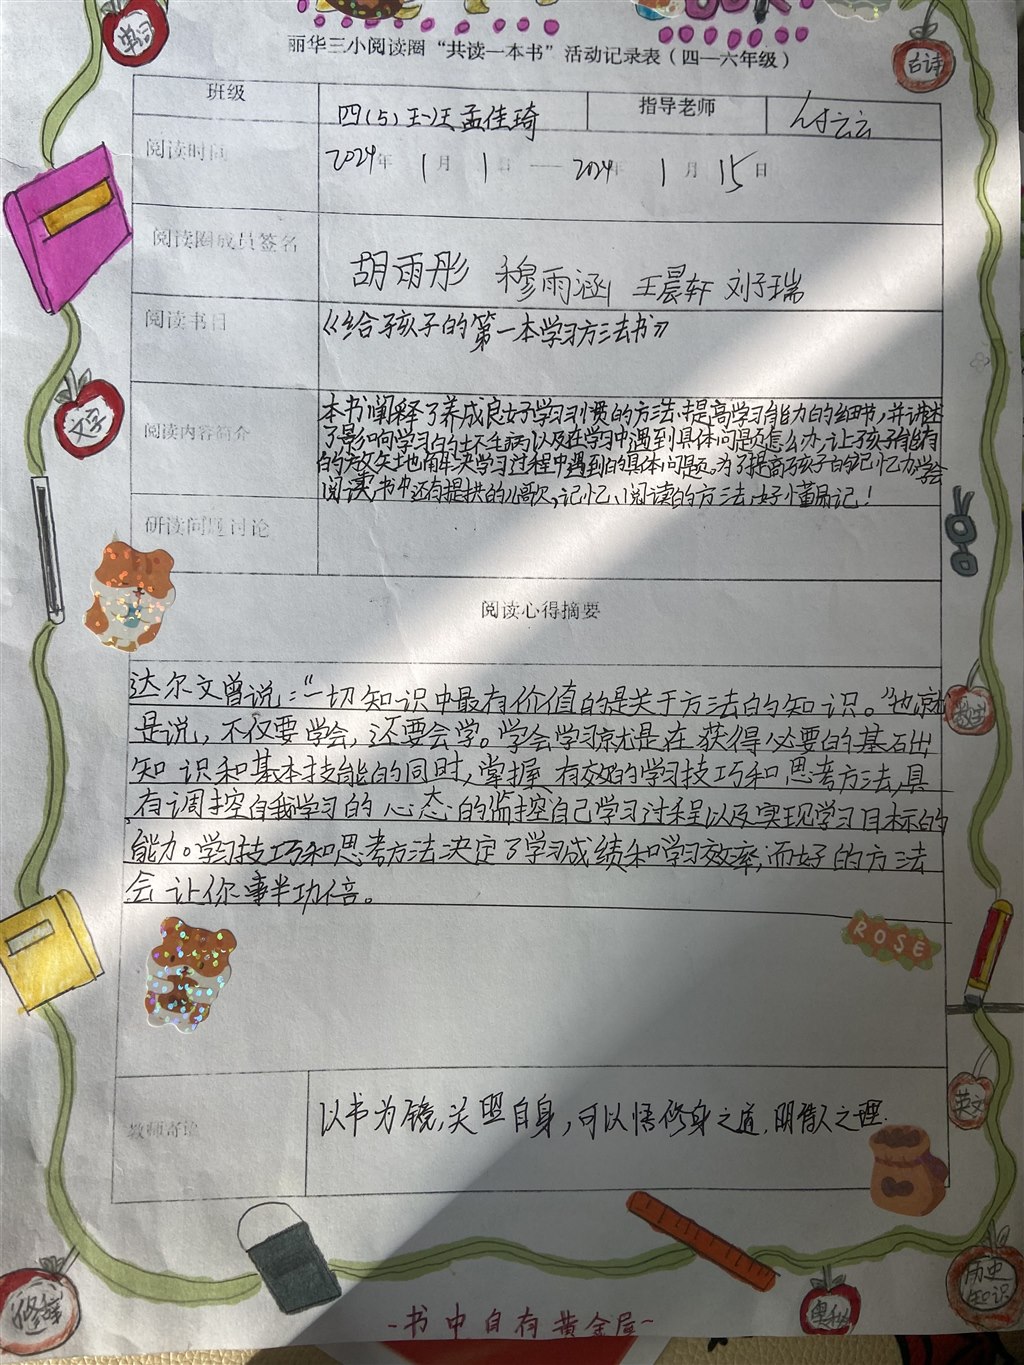 单词
古诗
丽华三小阅读圈“共读一本书”活动记录表(四一六年级)
班级
四(5)王班孟佳琦
指导老师
付云云
阅读时间
2024年 1月 1日 —— 2024年 1月 15日
阅读圈成员签名
胡雨彤 穆雨涵 王晨轩 刘子瑞
阅读书目
《给孩子的第一本学习方法书》
文字
阅读内容简介
本书阐释了养成良好学习习惯的方法、提高学习能力的细节,并讲述
了影响学习的坏毛病以及在学习中遇到具体问题怎么办,让孩子能有
的放矢地解决学习过程中遇到的具体问题。为了提高孩子的记忆力学会
阅读,书中还有提拱的儿歌,记忆、阅读的方法,好懂易记!
研读问题讨论
阅读心得摘要
达尔文曾说:“一切知识中最有价值的是关于方法的知识。”也就
是说,不仅要学会,还要会学。学会学习就是在获得必要的基础
知识和基本技能的同时,掌握有效的学习技巧和思考方法,具
有调控自我学习的心态的监控自己学习过程以及实现学习目标的
能力。学习技巧和思考方法决定了学习成绩和学习效率,而好的方法
会让你事半功倍。
数学
ROSE
英文
教师寄语
以书为镜,关照自身,可以悟修身之道,明做人之理.
修辞
奥秘
历史
知识
-书中自有黄金屋~